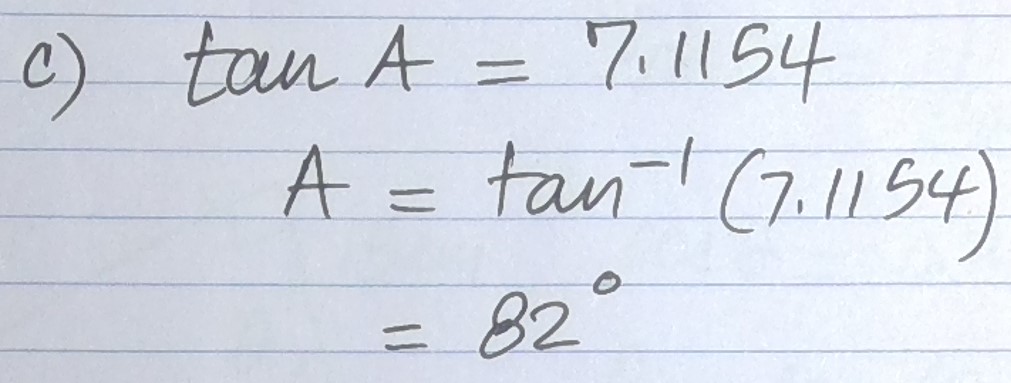 c) tan A = 7.1154
A = tan⁻¹ (7.1154)
= 82°